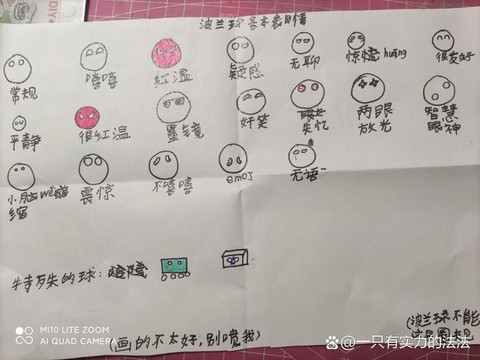 波兰球基本表情
常规 嘻嘻 红温 疑惑 无聊 惊慌 huāng 很友好
平静 很红温 墨镜 奸笑 失忆 两眼放光 智慧眼神
小脑 萎缩 震惊 不嘻嘻 emoj 无语
特殊的球:
(画的不太好,别喷我)
(波兰球不能
MI 10 LITE ZOOM
AI QUAD CAMERA
@一只有实力的法法